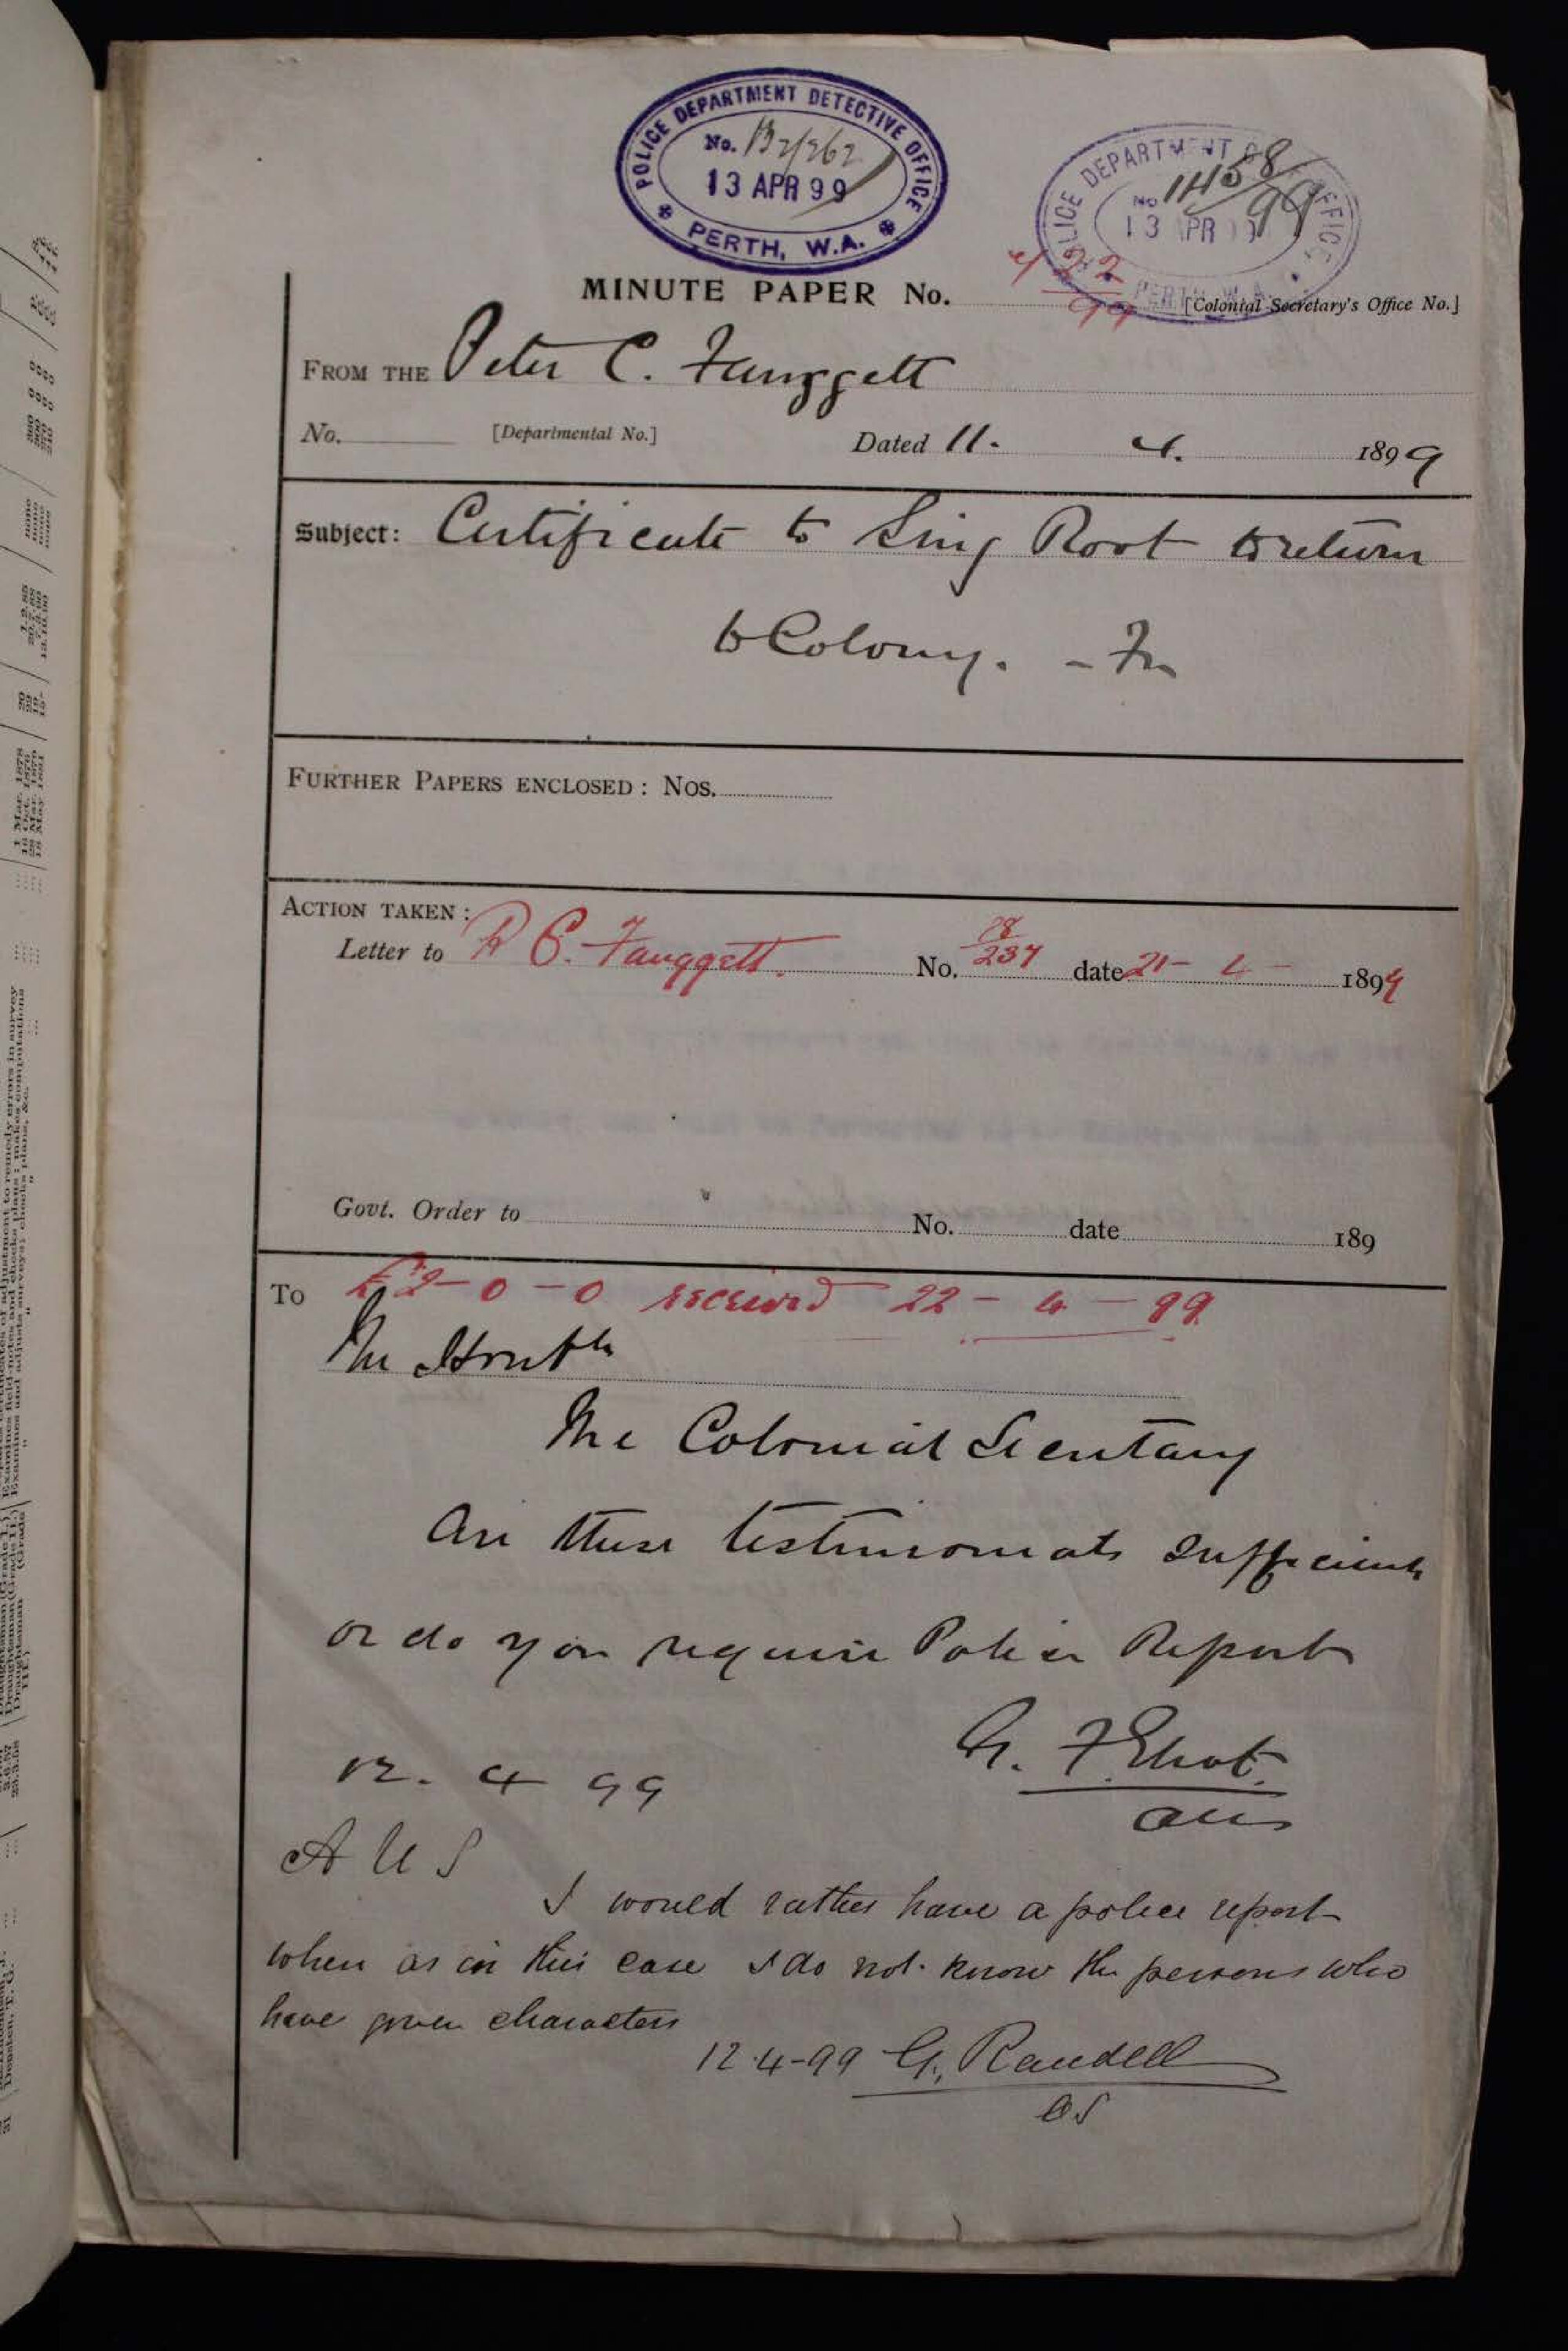 POLICE DEPARTMENT DETECTIVE OFFICE
No. B2/262
13 APR 99
PERTH, W.A.
POLICE DEPARTMENT OFFICE
No 1458/99
13 APR
MINUTE PAPER No.
[Colonial Secretary's Office No.]
FROM THE Peter C. Fanggett
No. [Departmental No.] Dated 11. 4. 1899
Subject: Certificate to Sing Root to return
to Colony. - For
FURTHER PAPERS ENCLOSED: Nos.
ACTION TAKEN:
Letter to P C. Fanggett. No. 28/237 date 21 - 4 - 1899
Govt. Order to No. date 189
To £2 - 0 - 0 received 22 - 4 - 99
The Honble
The Colonial Secretary
Are these testimonials sufficient
or do you require Police Report
G. F. Eliot.
12. 4 99
AUS
A U S
I would rather have a police report
when as in this case I do not know the persons who
have given characters
12-4-99 G. Randell
CS